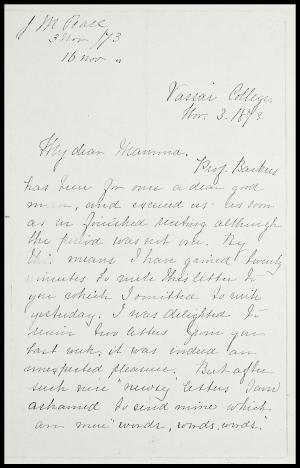 J M Pease
3 Nov /73
16 nov "
Vassar College,
Nov. 3. 1873.
My dear Mamma.
Prof. Backus
has been for once a dear good
man, and excused us as soon
as we finished reciting although
the period was not one. By
this means I have gained twenty
minutes to write this letter to
you which I omitted to write
yesterday. I was delighted to
receive two letters from you
last week, it was indeed an
unexpected pleasure. But after
such nice "newsy" letters I am
ashamed to send mine which
are mere "words, words, words."